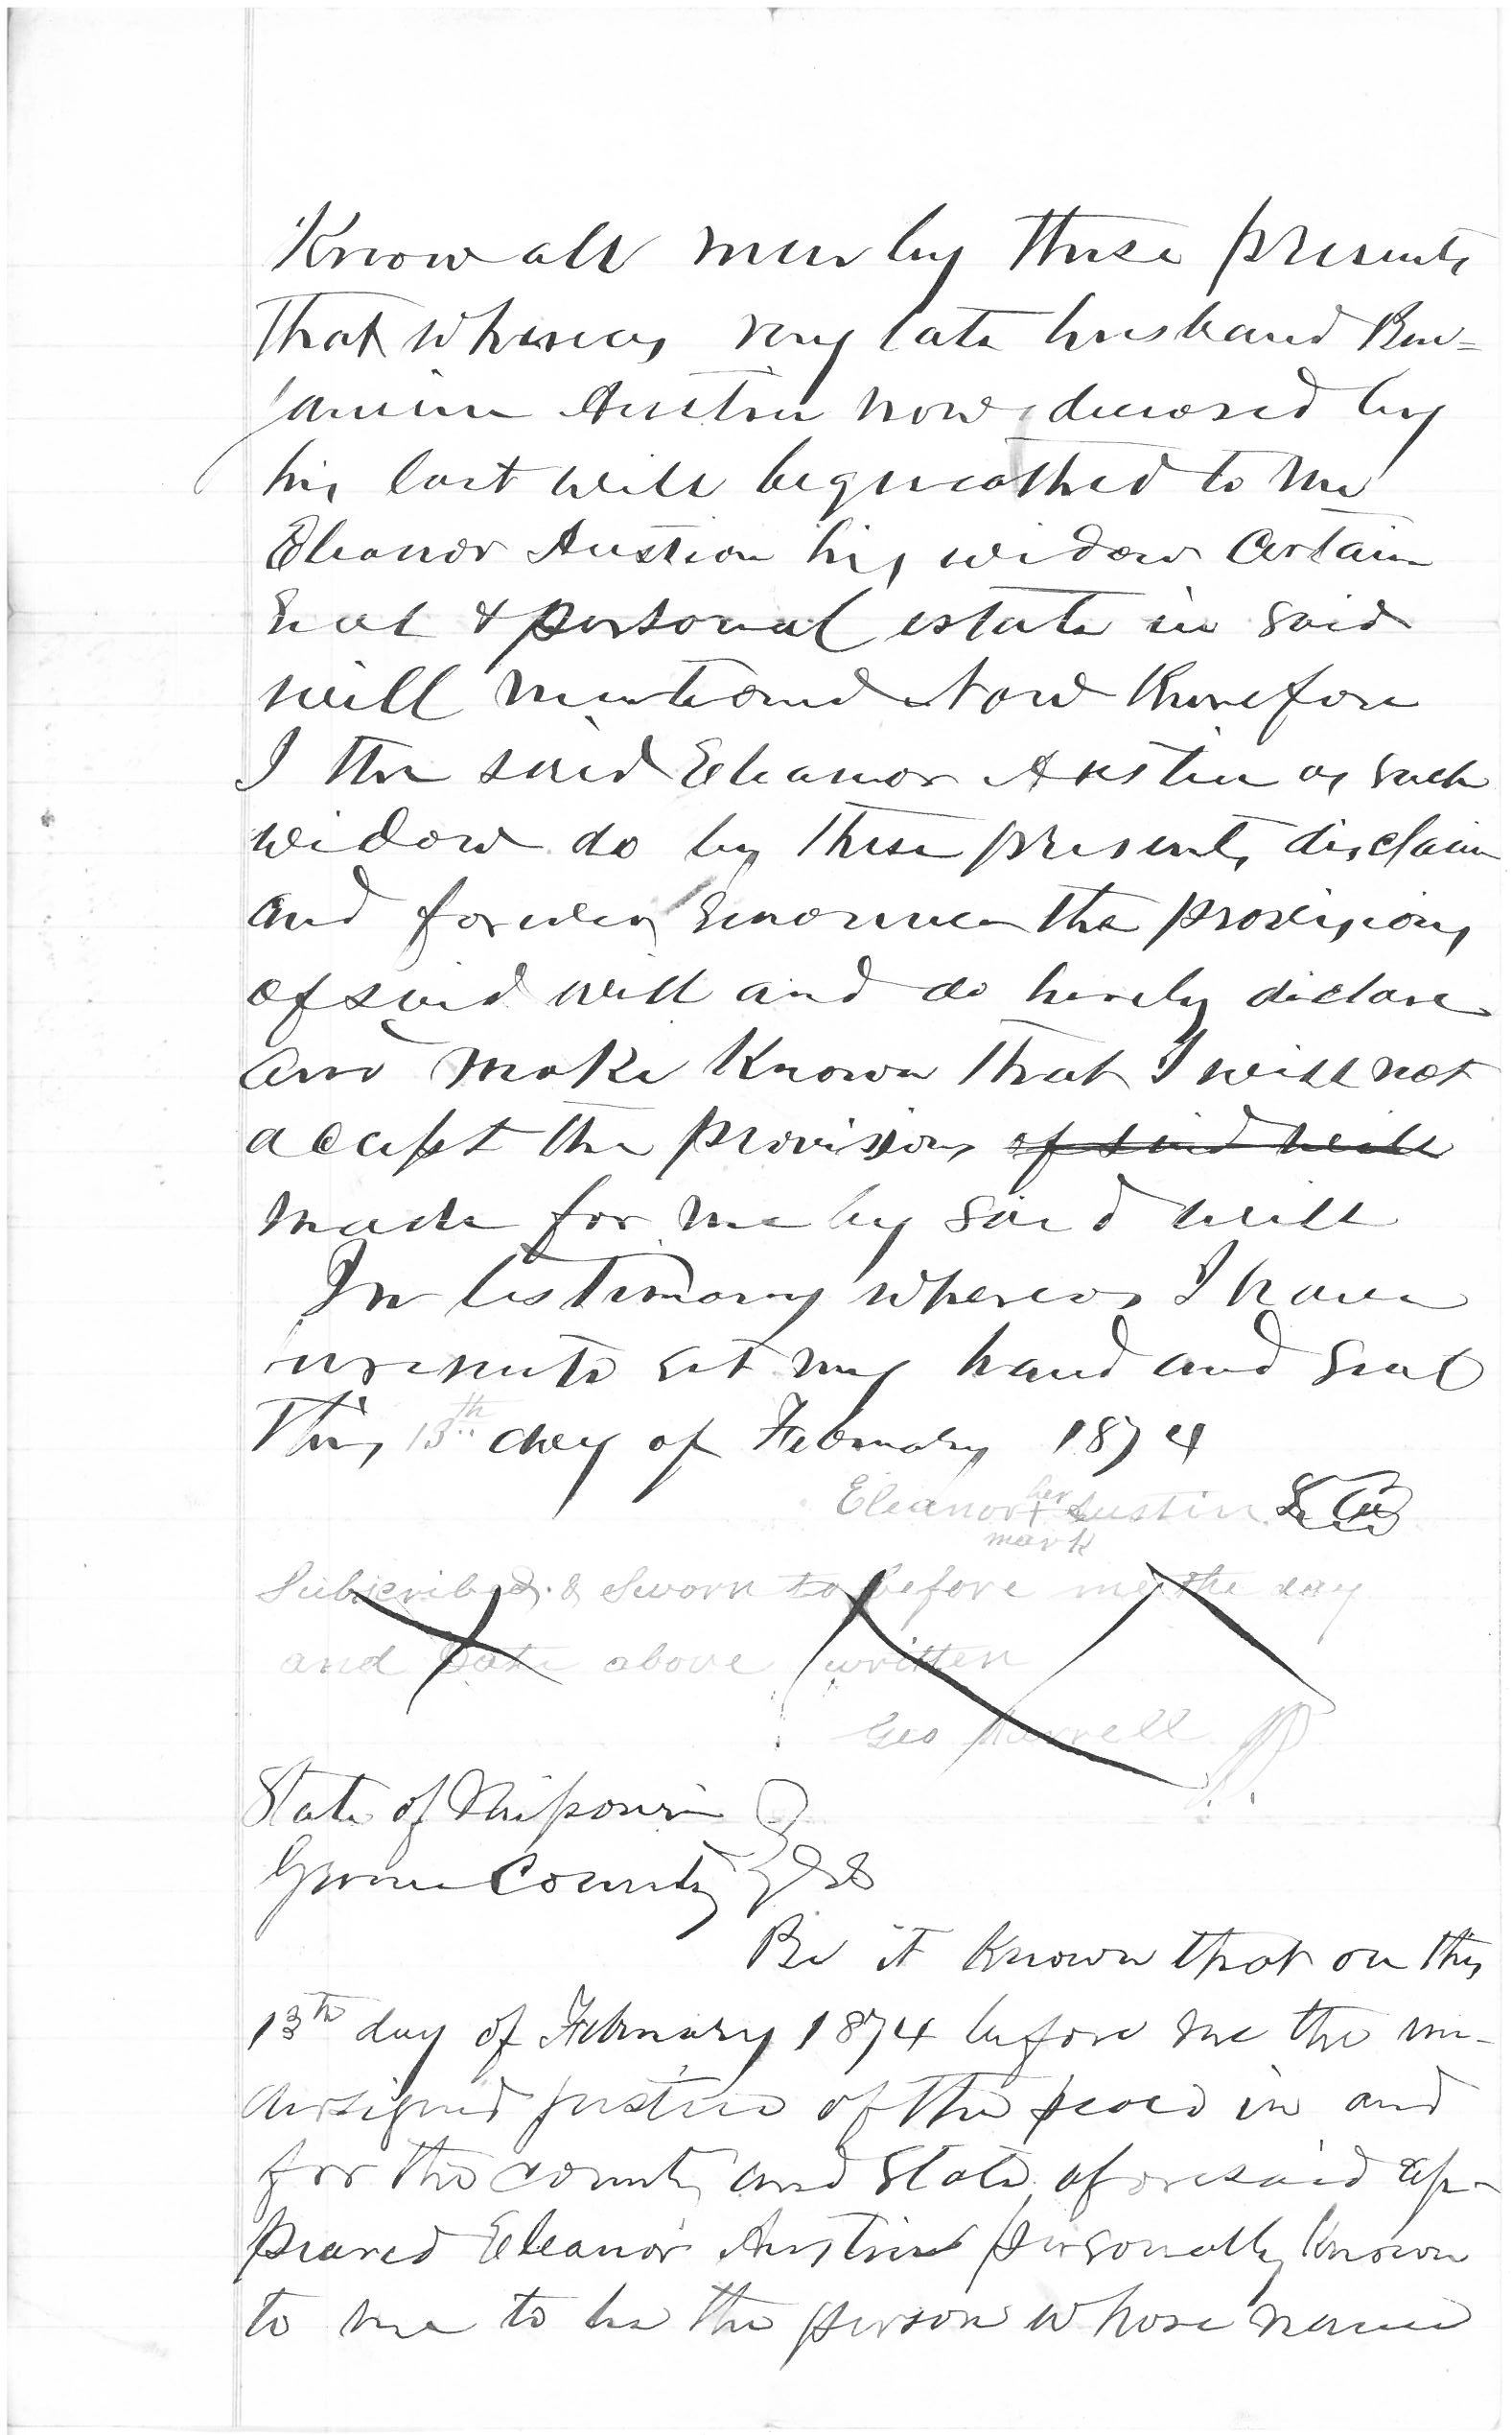 Know all men by these presents
that whereas my late husband Ben=
jamin Austin now deceased by
his last will bequeathed to me
Eleanor Austion his widow Certain
real & personal estate in said
will mentioned Now Therefore
I the said Eleanor Austin as such
widow do by these presents disclaim
and forever renounce the provisions
of said will and do hereby declare
and make Known that I will not
accept the provisions of said will
made for me by said will
In testimony whereas I have
set my hand and seal
This 13th day of February 1874
Eleanor her + Austin
mark
Subscribed & Sworn to before me the day
and Date above written
Geo
State of Missouri
Greene County ss
Be it Known that on this
13th day of February 1874 before me the un-
dersigned justice of the peace in and
for the county and State aforesaid ap-
peared Eleanor Austin personally Known
to me to be the person whose name